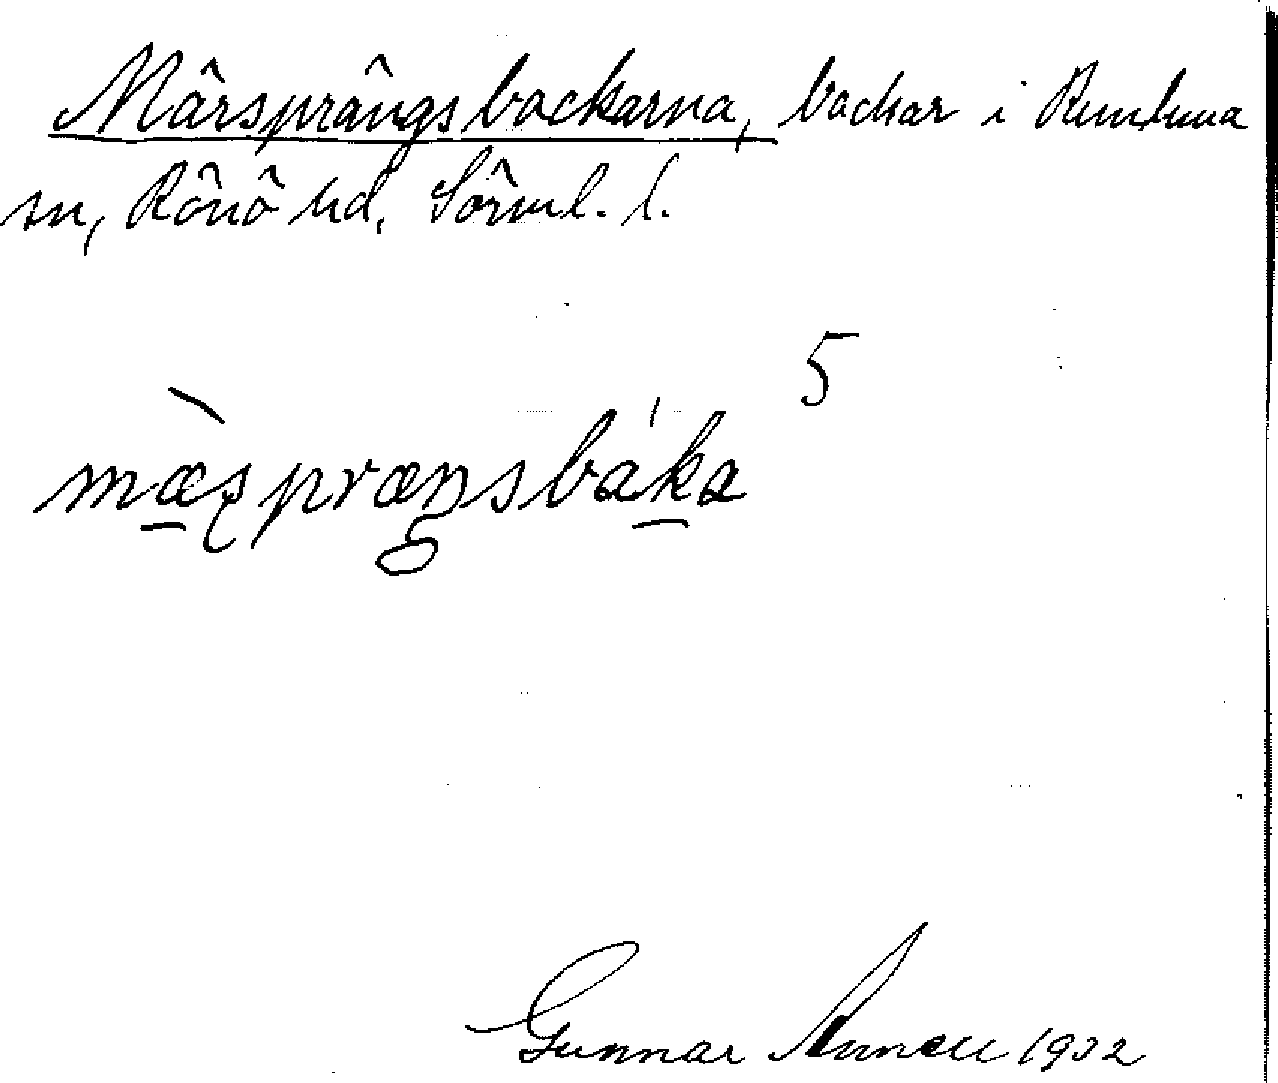 Mârsprângsbackarna, backar i Runtuna
sn, Rônô hd, Sôrml. l.
5
mæ̀s̨præŋsbáka
Gunnar Annell 1932